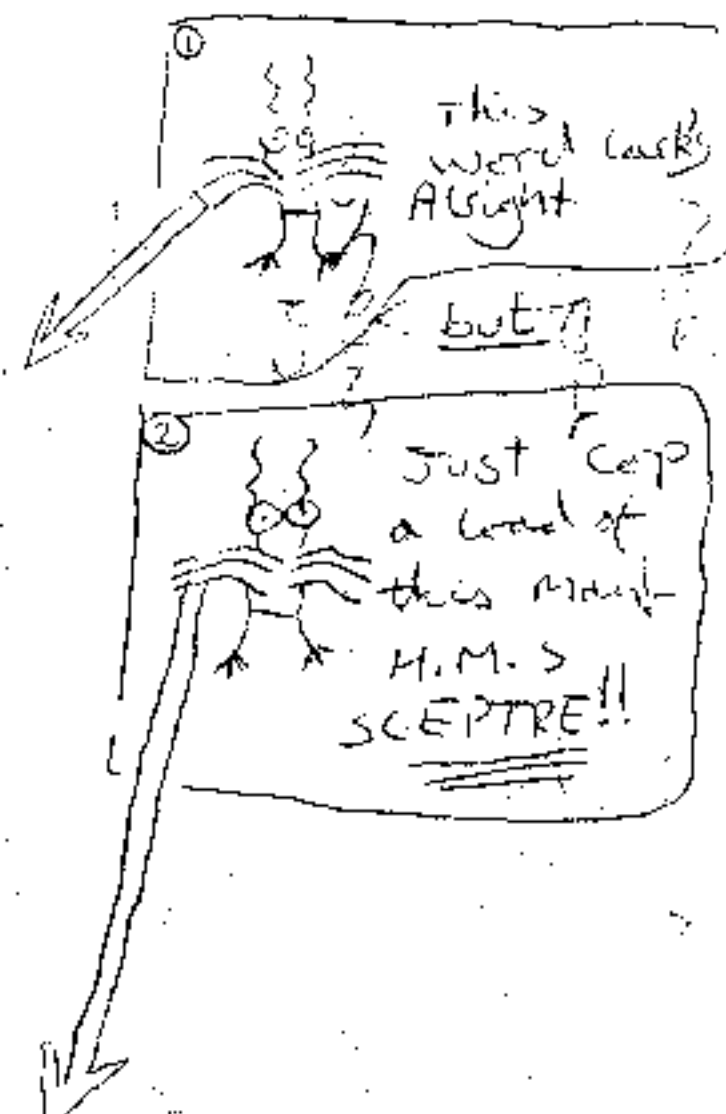 ①
This
word looks
Alright
but
②
Just cop
a load of
this Mans
H.M.S
SCEPTRE!!